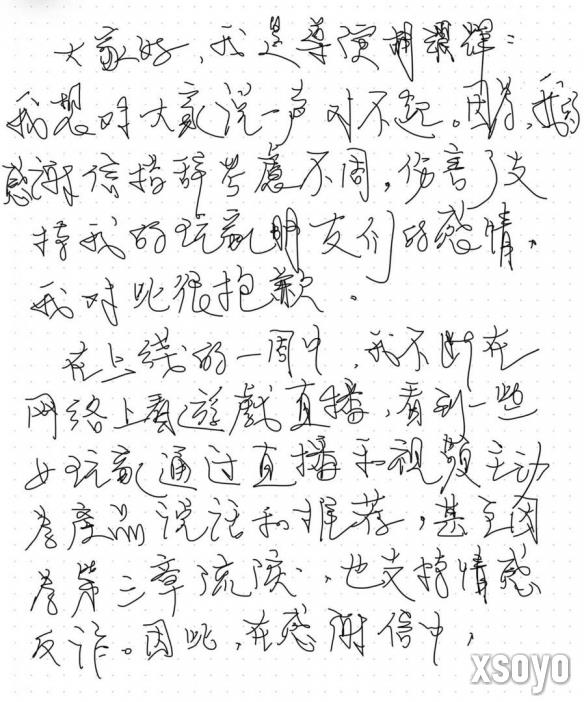 大家好,我是導演胡淵輝:
我想对大家说一声对不起。因为,我的
感谢信措辞考慮不周,伤害了支
持我的玩家朋友们的感情,
我对此很抱歉。
在上线的一周中,我不断在
网络上看遊戲直播,看到一些
女玩家通过直播和视频主动
為產品说话和推荐,甚至因
為第三章流淚,也支持情感
反诈。因此,在感谢信中,
xsoyo